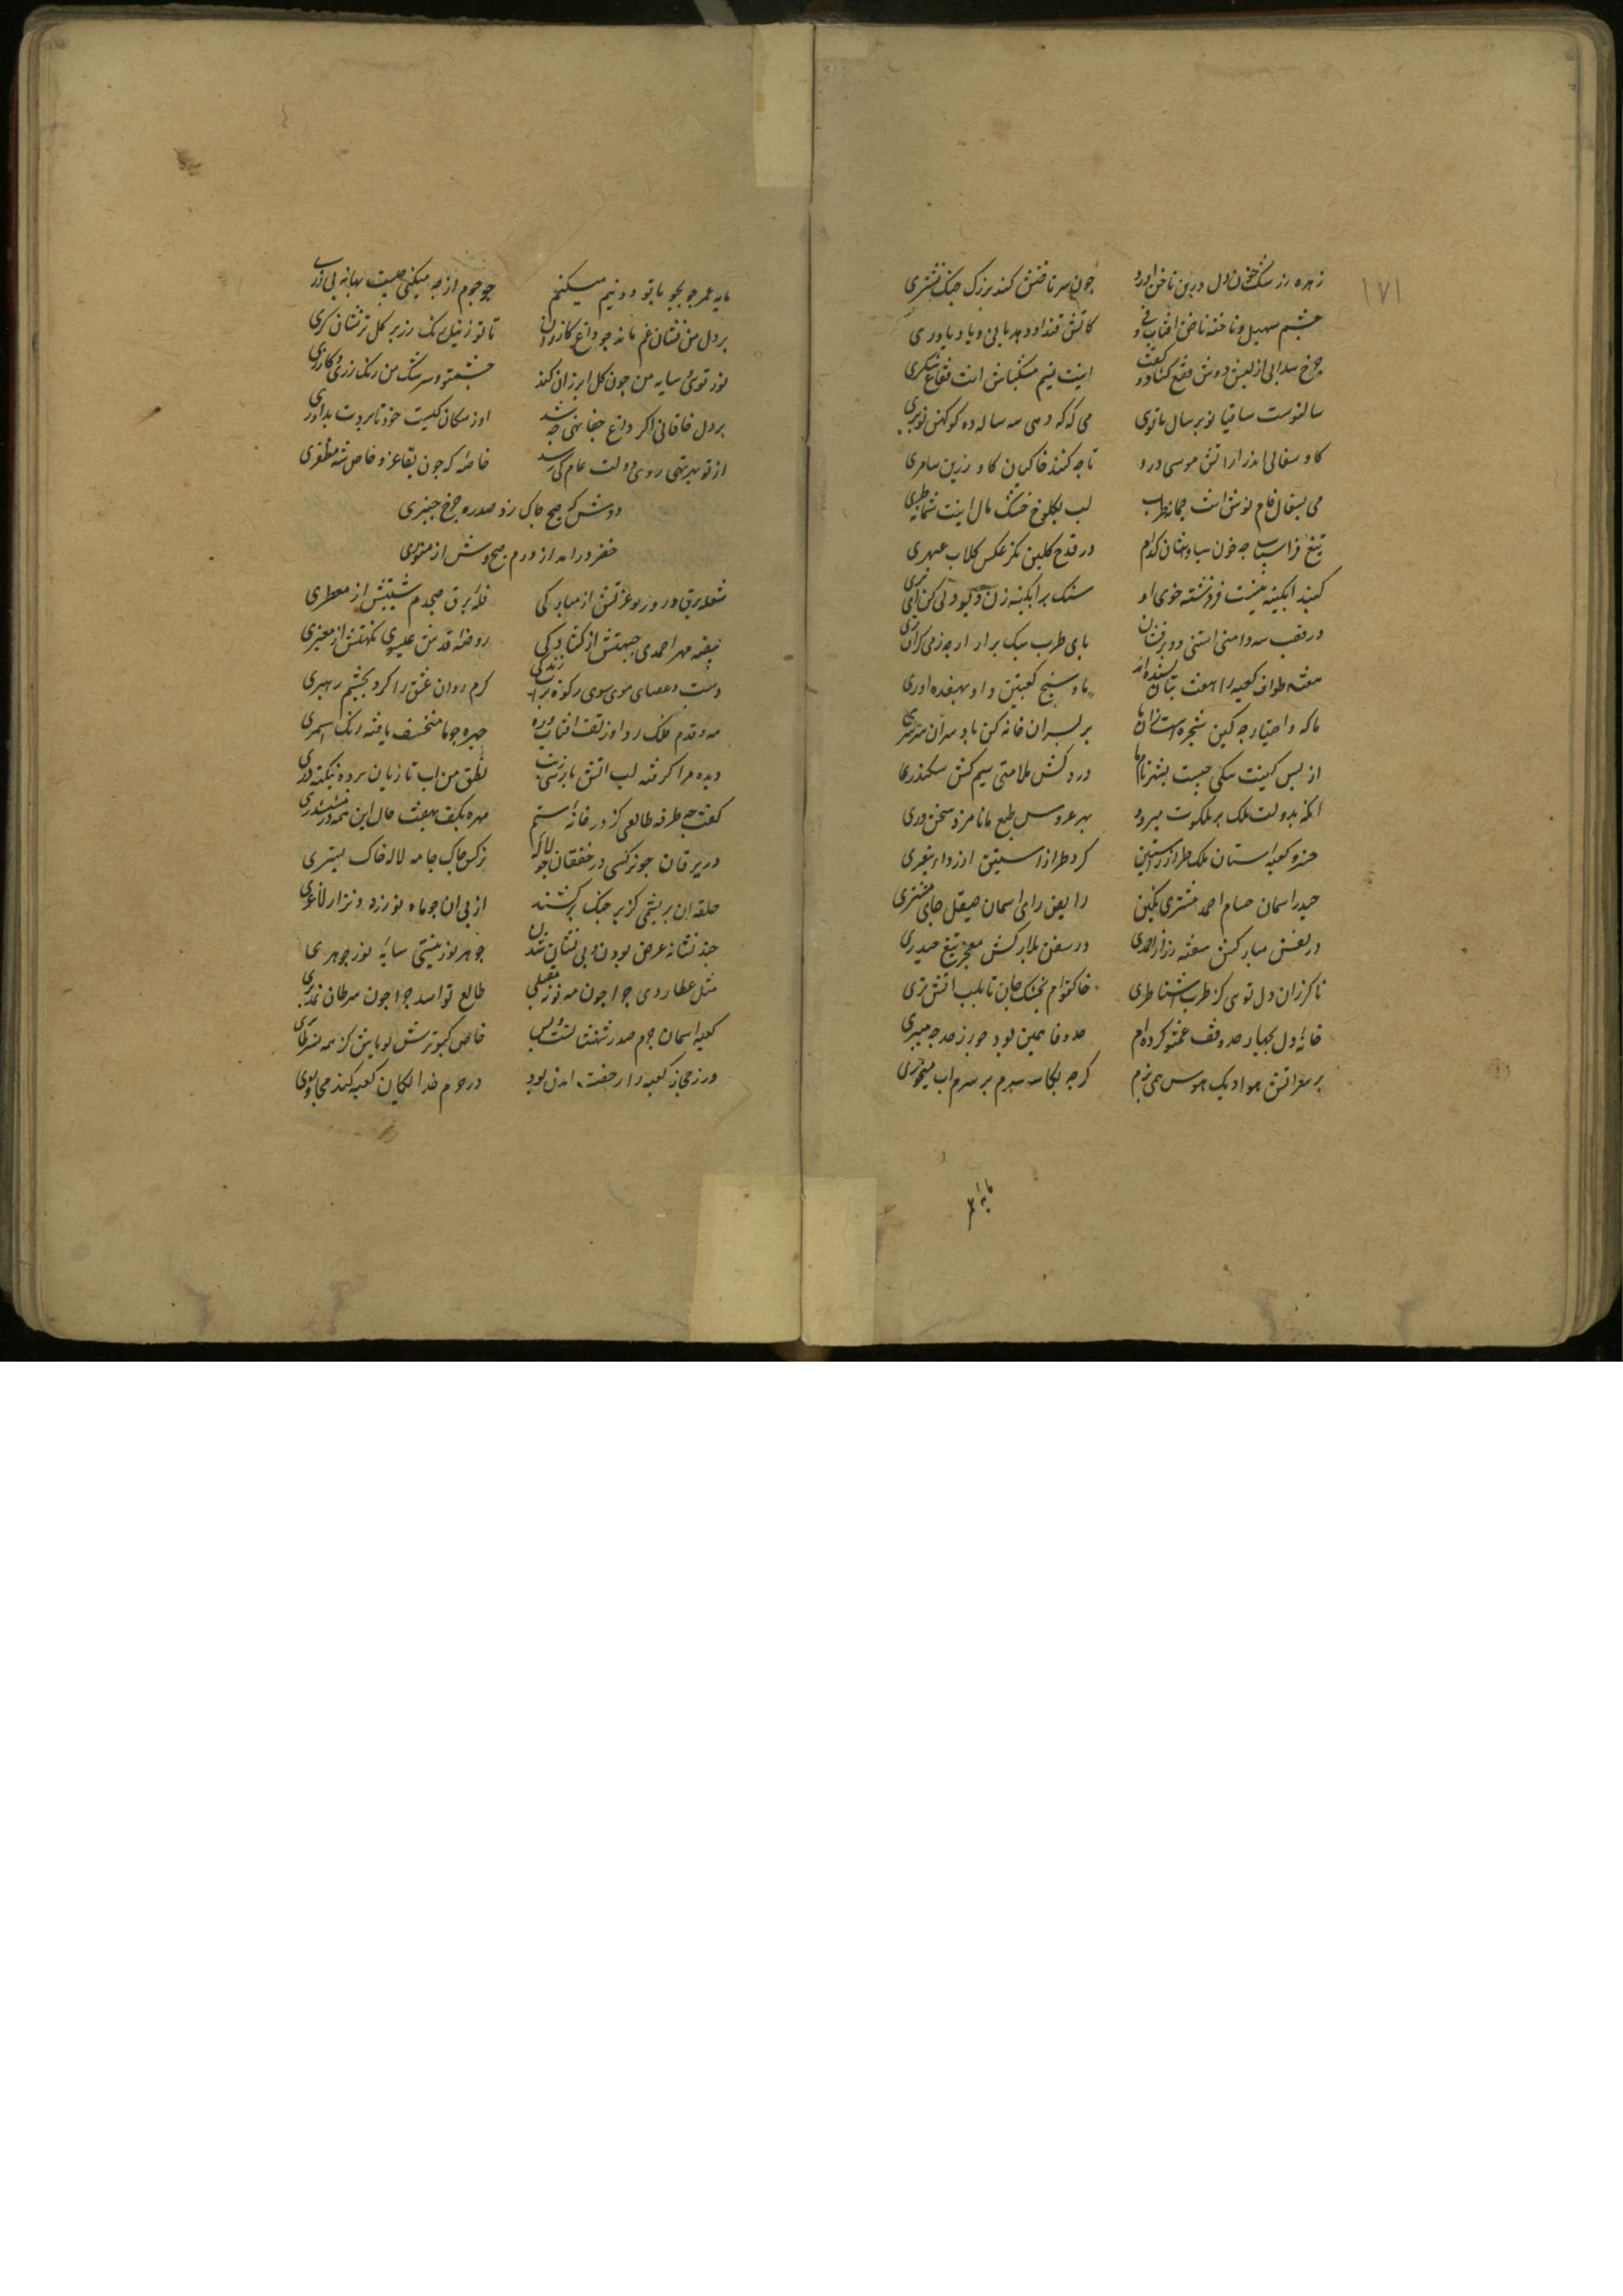 ۱۷۱
زهره ز رشک خون دل در بن ناخن اورد جون سر ناخنش کند بر رک جنک نشتری
جشم سهیل و ناخنه ناخن افتاب و نی کاتش قند او دهد با نی و باد یاوری
جرخ سدابی از لبش دوش فقع کشاد و گفت اینت نسیم مشکپاش انت فقاع شکری
سال نوست ساقیا نوبر سال ما توی می که که دهی سه ساله ده کو کهن نوبری
کاو سفالی اندر ار اتش موسی درو تا جه کنند خاکیان کاو زرین سامری
می بسفال خام نوش انت جمانه طرب لب بکلوخ خشک مال اینت شمایل طری
تیغ فراسیاب جه خون سیاوشان کدام در قدح کلین نکر عکس کلاب عبهری
کنبد ابکینه نیست فرشته خوی او سنک بر ابکینه زن دیو دلی کن ای پری
در قصب سه دامنی استنی دو برفشان پای طرب سبک برار ار جه ز می کران
هفته طواف کعبه را هفت بتان بسنده اند ما و سه پنج کعبتین داو بهفده اوری
ما که و اختیار جه کین شجره است زان ما بر لب ران خانه کن باد سران سرسری
از لبس کینت سکی جیست بشهر نام ما دردکش ملامتی سیم کش سکندری
انکه بدولت ملک بر ملکوت میرود بهر عروس طبع ما نامزد سخن وری
حزو کعبه استان ملک طراز راستین کرد طراز استین از رداء پیغمبری
حیدر اسمان حسام احمد مشتری نکین رایض رای اسمان صیقل جای مشتری
در نفس مبارکش سفته راز احمدی در سفن بلارکش معجز تیغ حیدری
ناکزران دل توی کز طرب اشنا طری خاک توام بخشک جان تا بلب اتش تری
خانه دل بجهار حد وقف غم تو کرده ام حد وفا همین بود جور ز حد جه میبری
بر سر اتش هوا دیک هوس همی پزم کرجه بکاسه سرم بر سرم اب میخوری
مایه عمر جو بجو با تو دو نیم میکنم جو جوم از جه میکنی جیست بهانه بی زری
بر دل من نشان غم ماند جو داغ کازران تا تو ز نیل رنک رز بر کل تر نشان کری
نور توئ سایه من جون کل ابر زان کنند جشم تو و سرشک من رنک رزی و کازری
بر دل خاقانی اکر داغ جفا نهی جه شد او ز سکان کیست خود تا بردت بداوری
از تو بهر تهی روی دولت عام کی رسد خاصه که جون بقاء عز و خاص شه مظفری
دوش که صبح جاک زد صدره جرخ جنبری
خضر درامد از درم صبح وش از منوری
شعله برق در وروز عزتش از مبارکی قله برق صبحدم شیبتش از معطری
بیضه مهر احمدی جبهتش از کشادکی روضه قدس عیسوی نکهتش از معنبری
دست و عصای موسوی رکوه پر اب زندکی کرم روان عشق را کرد بجشم رهبری
مه قدم فلک ردا وز تف افتاب و ره جهره جو ما منخسف یافته رنک اسمری
دیده مرا کرفته لب اتش بارسی ز تب نطق من اب تازیان برده بنکته دری
کفت جه طرفه طالعی کز در خانه ششم مهره بکف بهفت حال این همه در ششدری
در یرقان جو نرکسی در خفقان جو لاله نرکس جاک جامه لاله خاک بستری
حلقه ان بریشمی کز بر جنک برکشند از بی ان جو ماه نو زرد و نزار و لاغری
جند نشانه عرض بودن و بی نشان شدن جوهر نور نیستی سایه نور جوهری
مثل عطاردی جرا جون مه نو نه مقبلی طالع تو اسد جرا جون سرطان بمدبری
کعبه اسمان حرم صدر شهنشه است و بس خاص کبوترش توی باش کز همه سرطایری
ور ز حجاز کعبه را رخصت امدن بود در حرم خدایکان کعبه کند مجاوری